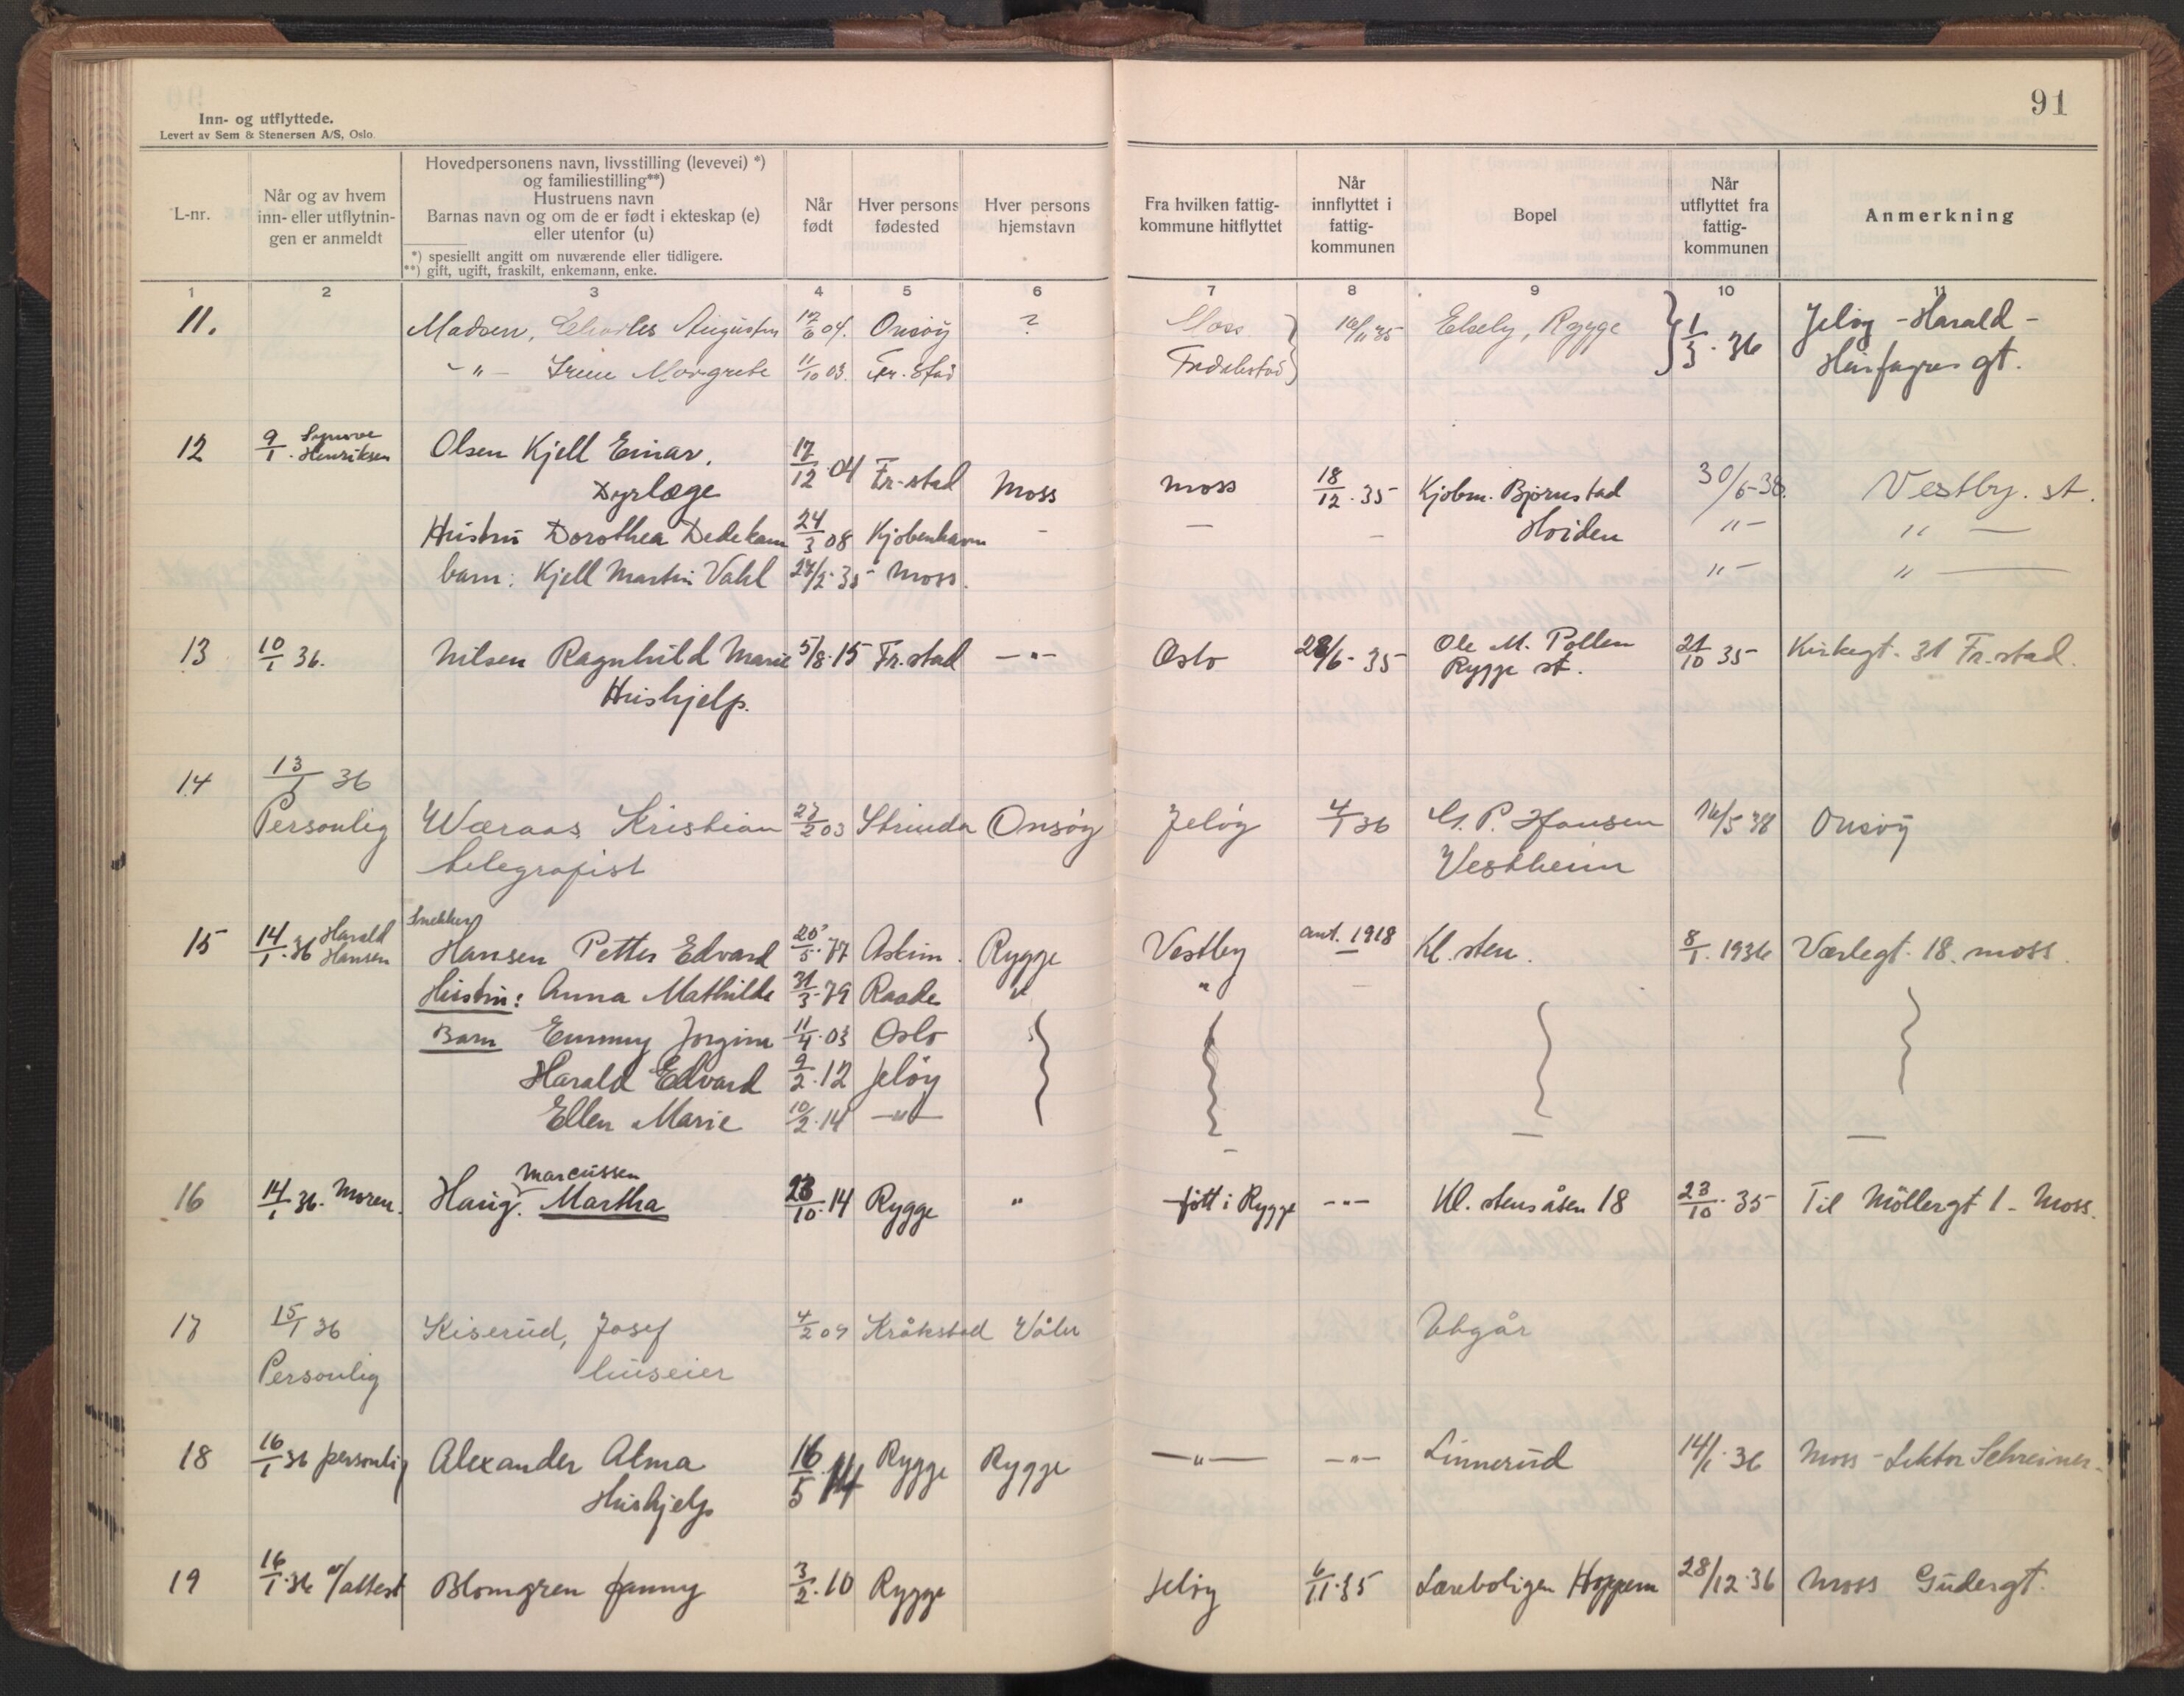 91
Inn- og utflyttede.
Levert av Sem & Stenersen A/S, Oslo.
L-nr.
Når og av hvem
inn- eller utflytnin-
gen er anmeldt
Hovedpersonens navn, livsstilling (levevei) *)
og familiestilling**)
Hustruens navn
Barnas navn og om de er født i ekteskap (e)
eller utenfor (u)
*) spesiellt angitt om nuværende eller tidligere.
**) gift, ugift, fraskilt, enkemann, enke.
Når
født
Hver persons
fødested
Hver persons
hjemstavn
Fra hvilken fattig-
kommune hitflyttet
Når
innflyttet i
fattig-
kommunen
Bopel
Når
utflyttet fra
fattig-
kommunen
Anmerkning
1 2 3 4 5 6 7 8 9 10 11
11. Madsen, Charles Augustin 17/6 04. Onsöy ? Moss 16/11 35 Ekely, Rygge 1/3 . 36 Jelöy - Harald -
- " - Irene Margrete 11/10 03. Fr. stad Fredrikstad Hårfagres gt.
12 9/1 . Synnove Henriksen Olsen Kjell Einar. 17/12 . 04 Fr-stad Moss moss 18/12 . 35 Kjöbm. Björnstad 30/6-38. Vestby. st.
Dyrlæge
Hustru Dorothea Dedekam 24/3 08 Kjöbenhavn - — - Hoiden "- " —
barn: Kjell Martin Vahl 27/2. 35 Moss. "- " —
13 10/1 36. Nilsen Ragnhild Marie 5/8. 15 Fr. stad — " — Oslo 28/6- 35 Ole M. Pollen 21/10 35 Kirkegt. 31 Fr. stad.
Hushjelp. Rygge st.
14 13/1 36
Personlig Wæraas Kristian 27/2 03 Strinda Onsöy Jelöy 4/1 36 G. P. Hansen 16/5 38 Onsöy
telegrafist Vestheim
Snekker
15 14/1 . 36 Harald Hansen Hansen Petter Edvard 20/5. 77 Askim. Rygge Vestby ant. 1918 Kl. sten. 8/1. 1936 Værlegt. 18. moss.
Hustru: Anna Mathilde 31/3. 79 Raade " "
Barn Emmy Jorgine 11/4. 03 Oslo
Harald Edvard 9/2. 12 Jelöy
Ellen Marie 10/2. 14 — " —
Marcussen
16 14/1 36. Moren. Haug. Martha 23/10. 14 Rygge " fött i Rygge - " - Kl. stensåsen 18 23/10. 35 Til Möllergt 1 - Moss.
17 15/1 36 Kiserud, Josef 4/2 09 Kråkstad Våler Utgår
Personlig huseier
18 16/1 36 personlig Alexander Alma 16/5 14 Rygge Rygge — " — - " - Linnerud 14/1. 36 Moss - Lektor Schreiner.
Hushjelp
19 16/1. 36 v/attest Blomgren Fanny 3/2. 10 Rygge Jelöy 6/11. 35 Læreboligen Hoppern 28/12. 36 Moss Gudergt.